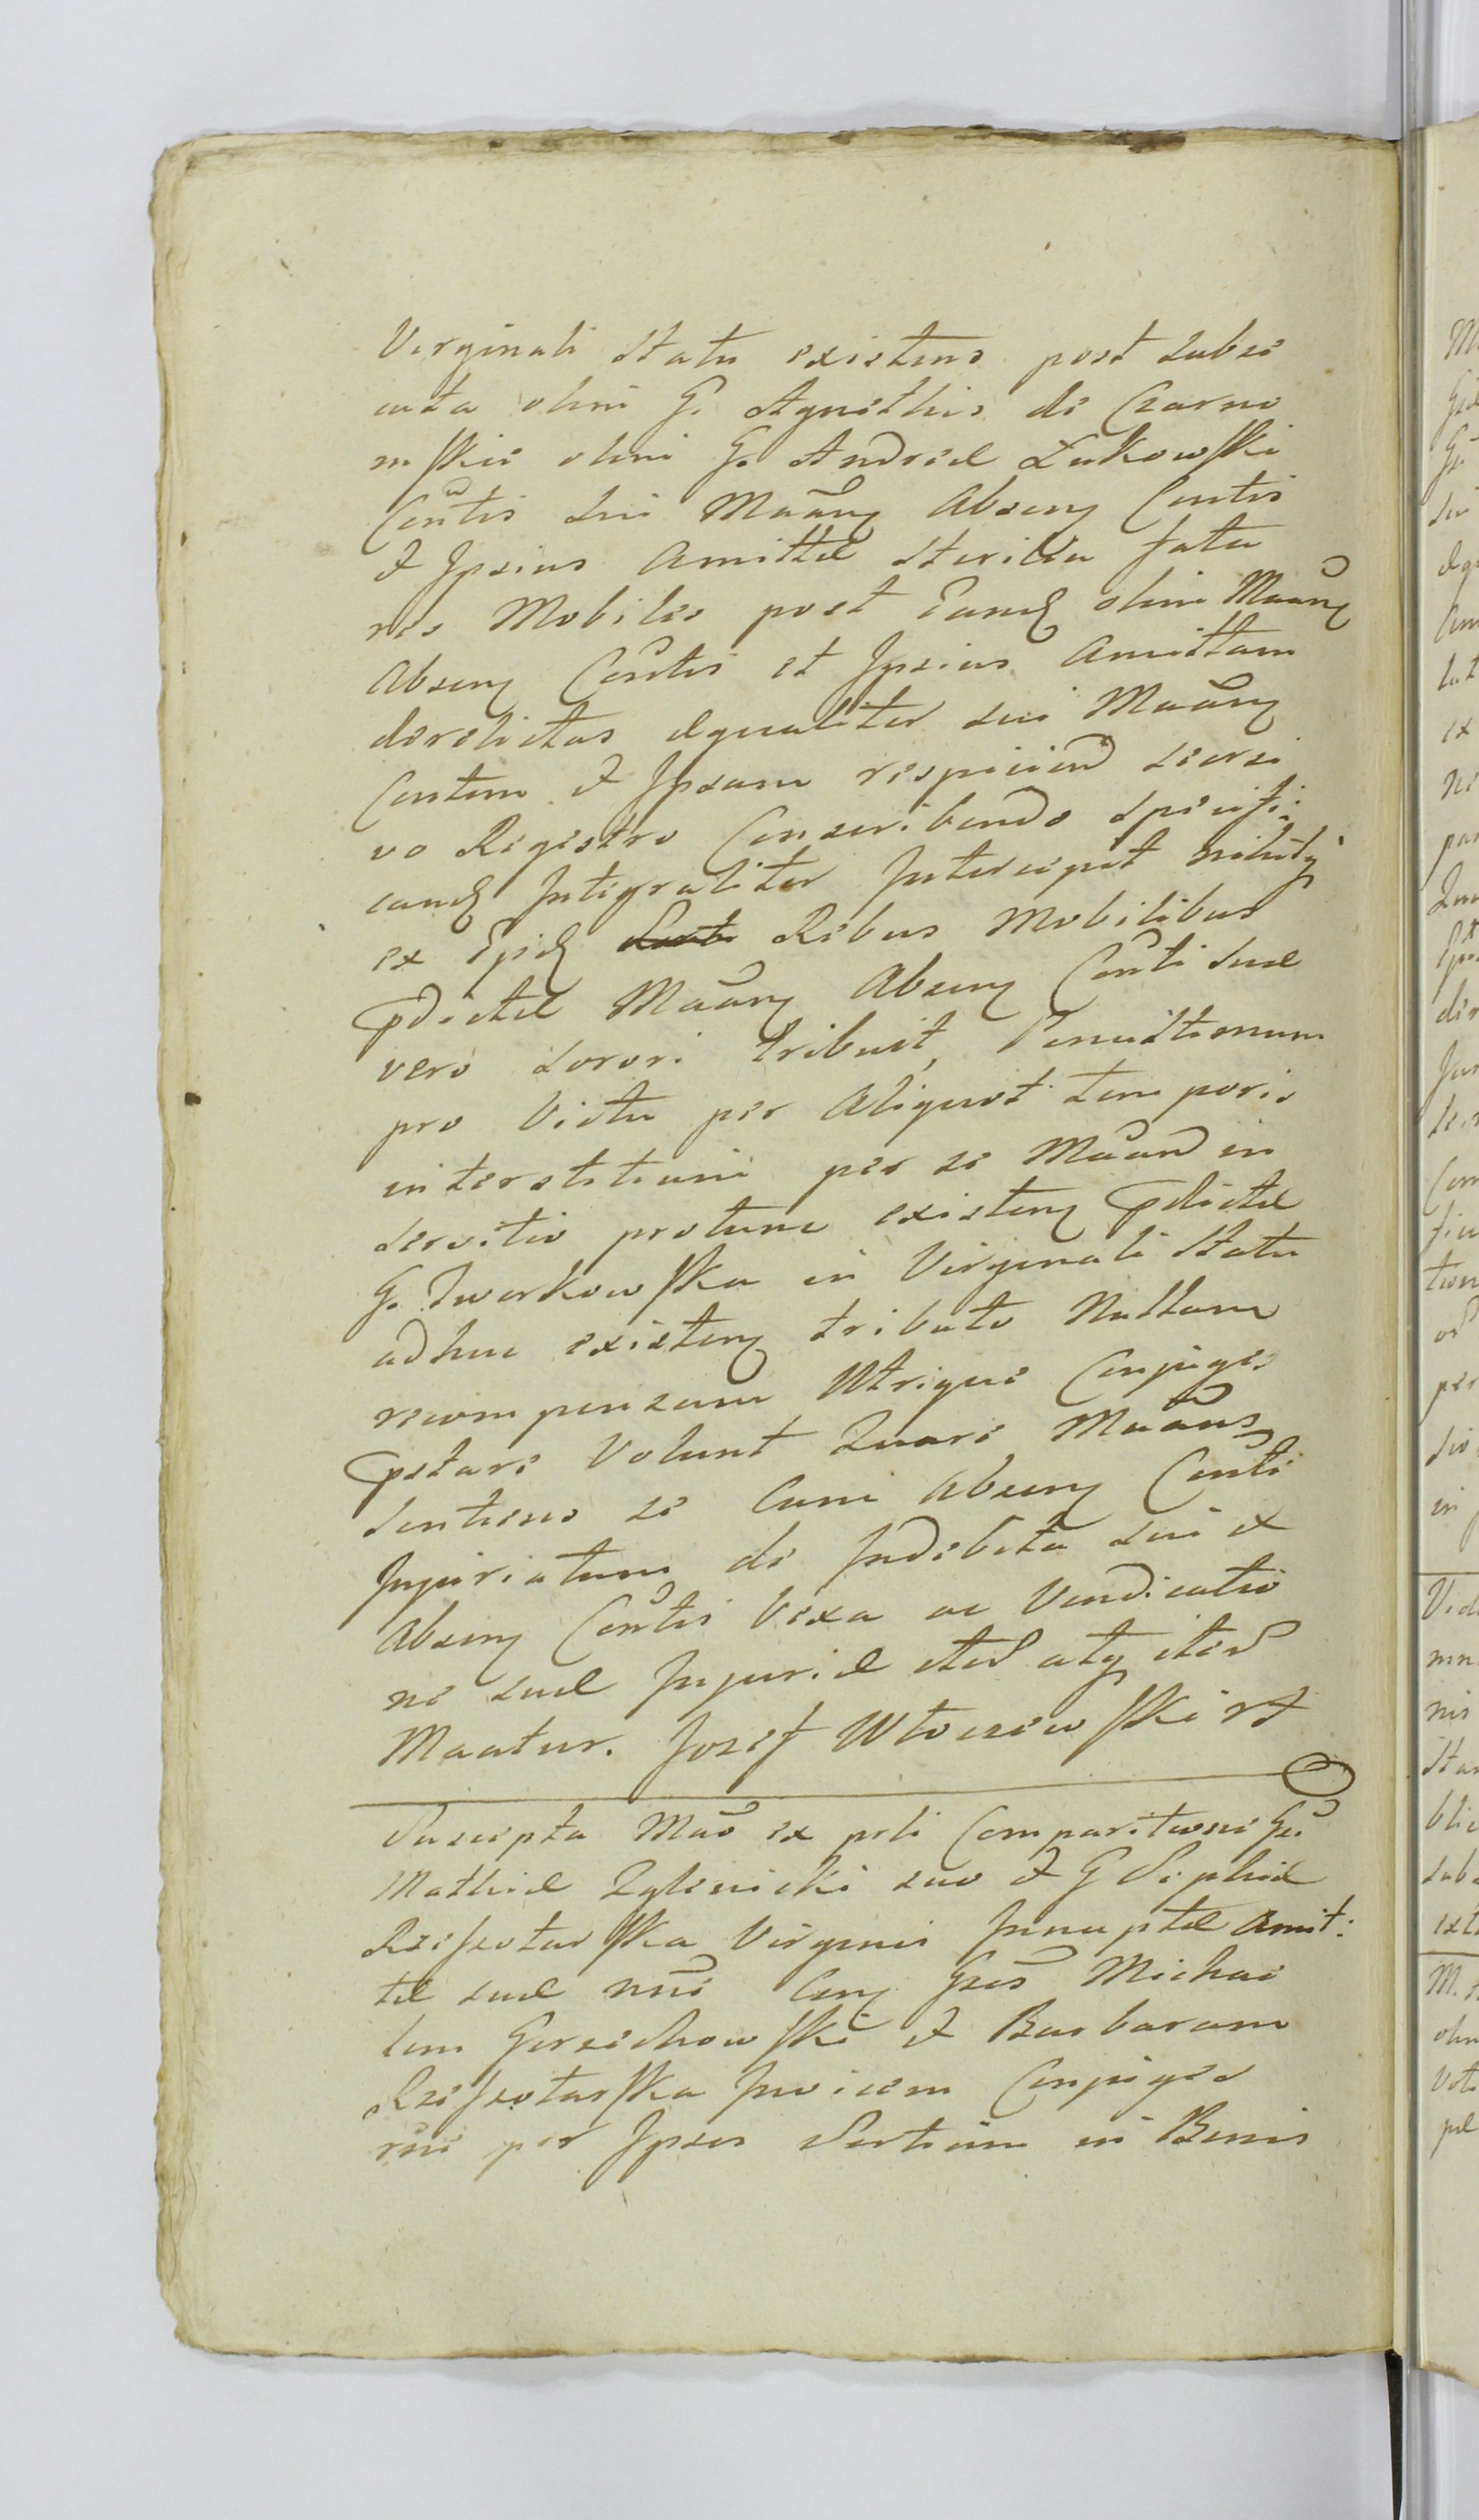 Virginali Statu existens post subse
cuta olim G. Agnethis de Czarno
mskie olim G. Andreæ Łukowski
Contis sui Maāng Absen Contis
et Ipsius Amittæ Sterilia fata
res Mobiles post Eand olim Maāng
Absen Contis et Ipsius Amittam
derelictas æqualiter sui Maāng
Contem et Ipsam respiciend seorsi
vo Registro Conscribendo specifi:
cand Integraliter Intercepit nihilq
ex Ejsd Rebus Mobilibus
pdictæ Maāng Absen Conti suæ
vero Sorori tribuit,
pro Victu per Aliquot temporis
interstitium per se Māand in
servitio protunc existen pdictæ
G. Dworkowska in Virginali Statu
adhuc existen tributo Nullam
recompensam Utrique Conjuges
pstare Volunt Quare Maāns
sentiens se Cum Absen Conti
Injuriatum de Indebita sui et
Absen Contis Vexa ac Vendicatio
ne suæ Injuriæ ited atq ited
Maatur. Jozef Włoczewski rt
Suscepta Mãō ex prli Comparitione Gsi
Mathiæ Zglenicki suo et G Sophiæ
Rzeszotarska Virginis Innuptæ Amit:
tæ suæ nne Cong Gsos Michae
lem Gorzechowski et Barbaram
Rzeszotarska Invicem Conjuges
rne per Ipsos Sortium in Bonis